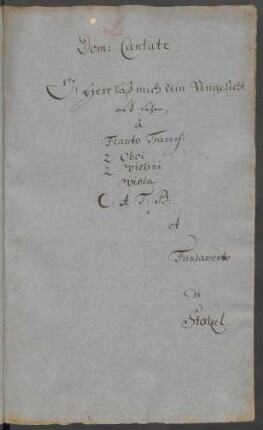 Dom: Cantate
Herr laß mich dein Angesicht
à
Flauto Travers:
2 Oboi
2 Violini
Viola
C: A: T: B:
et
Fundamento
di
Stölzel